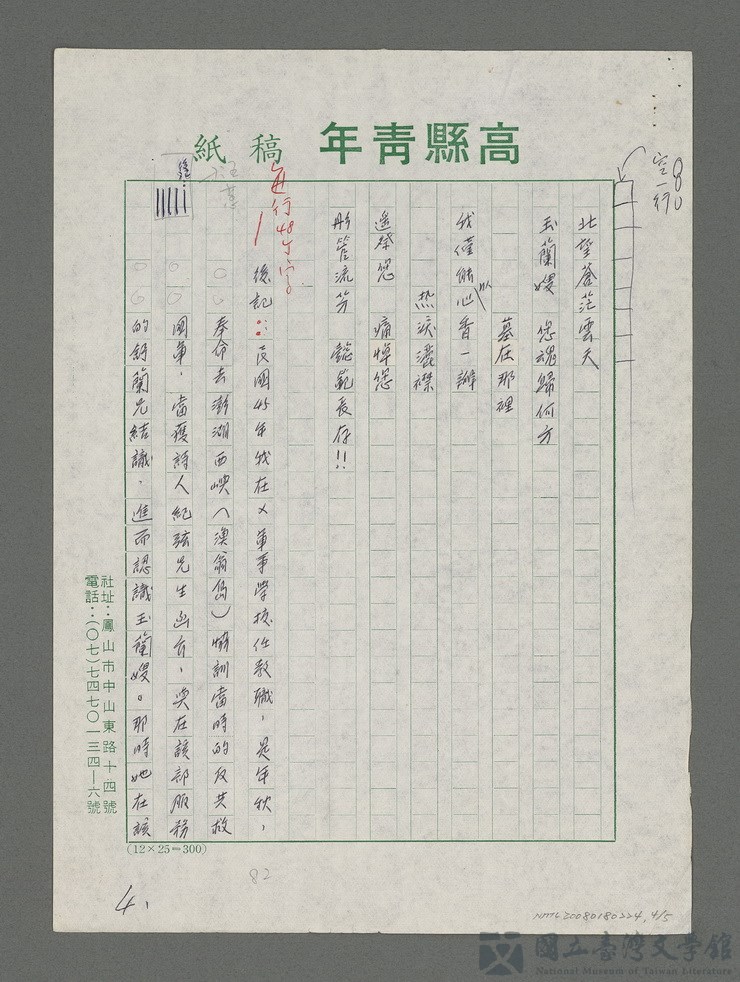 高縣青年
稿紙
空一行
北望蒼茫雲天
玉蘭嫂 您魂歸何方
墓在那裡
我僅能以心香一瓣
热淚濕襟
遥祭您 痛悼您
彤管流芳 懿範長存!!
每行48個字
後記：民國45年我在×軍事學校任教職，是年秋，
奉命去澎湖西嶼（漁翁島）特訓當時的反共救
國軍，當獲詩人紀弦先生函介，與在該部服務
的舒蘭兄結識，進而認識玉蘭嫂。那時她在該
社址：鳳山市中山東路十四號
電話：(〇七)七四七〇一三四—六號
(12×25=300)
82
4.
NMTL20080180224, 4/5
國立臺灣文學館
National Museum of Taiwan Literature